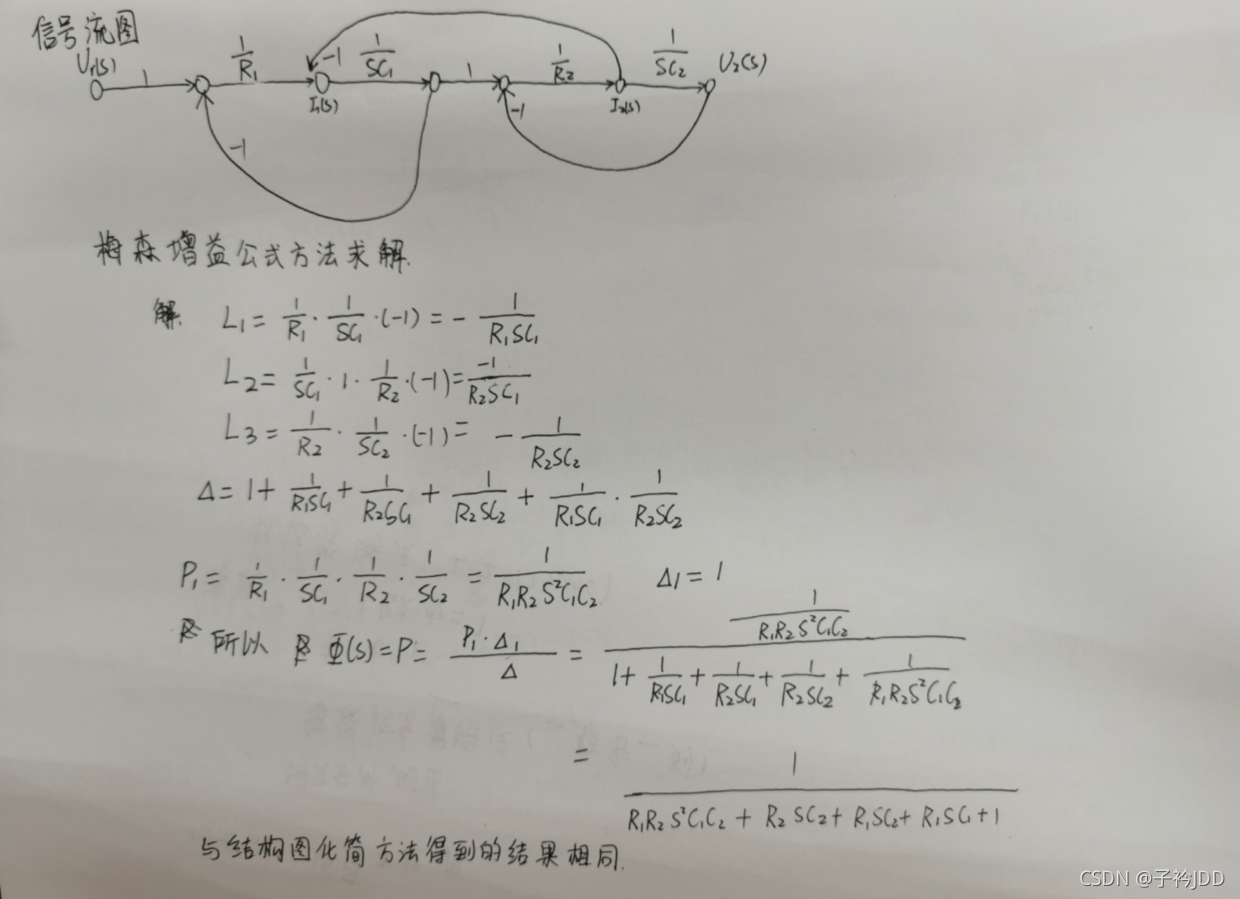 信号流图
U₁(s) 1 1/R₁ -1 1/SC₁ 1 1/R₂ 1/SC₂ U₂(s)
I₁(s) I₂(s)
-1 -1
梅森增益公式方法求解.
解. L₁ = 1/R₁ · 1/SC₁ · (-1) = - 1/R₁SC₁
L₂ = 1/SC₁ · 1 · 1/R₂ · (-1) = -1/R₂SC₁
L₃ = 1/R₂ · 1/SC₂ · (-1) = - 1/R₂SC₂
Δ = 1 + 1/R₁SC₁ + 1/R₂SC₁ + 1/R₂SC₂ + 1/R₁SC₁ · 1/R₂SC₂
P₁ = 1/R₁ · 1/SC₁ · 1/R₂ · 1/SC₂ = 1/R₁R₂S²C₁C₂ Δ₁ = 1
所以 Φ(s) = P = P₁·Δ₁/Δ = (1/R₁R₂S²C₁C₂)/(1 + 1/R₁SC₁ + 1/R₂SC₁ + 1/R₂SC₂ + 1/R₁R₂S²C₁C₂)
= 1/(R₁R₂S²C₁C₂ + R₂SC₂ + R₁SC₂ + R₁SC₁ + 1)
与结构图化简方法得到的结果相同.
CSDN @子衿JDD